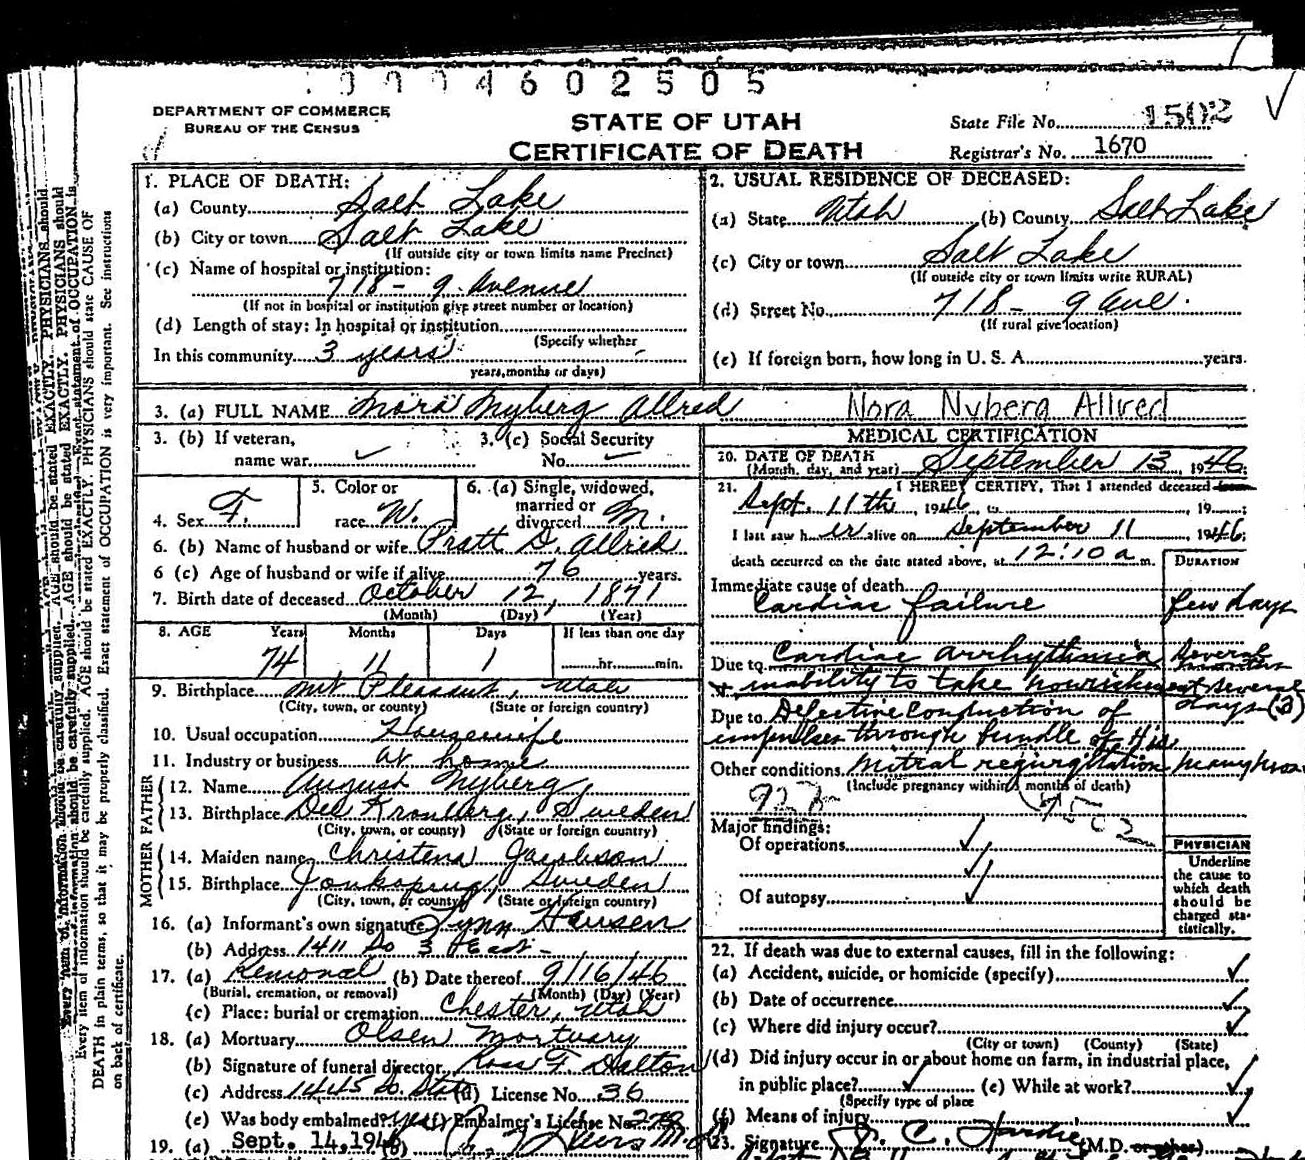 0004602505
DEPARTMENT OF COMMERCE
BUREAU OF THE CENSUS
STATE OF UTAH
CERTIFICATE OF DEATH
State File No. 1502
Registrar's No. 1670
1. PLACE OF DEATH:
(a) County Salt Lake
(b) City or town Salt Lake
(If outside city or town limits name Precinct)
(c) Name of hospital or institution:
718 - 9 Avenue
(If not in hospital or institution give street number or location)
(d) Length of stay: In hospital or institution
(Specify whether
In this community 3 years
years, months or days)
2. USUAL RESIDENCE OF DECEASED:
(a) State Utah (b) County Salt Lake
(c) City or town Salt Lake
(If outside city or town limits write RURAL)
(d) Street No. 718 - 9 Ave.
(If rural give location)
(e) If foreign born, how long in U. S. A. years.
3. (a) FULL NAME Nora Nyberg Allred Nora Nyberg Allred
3. (b) If veteran,
name war
3. (c) Social Security
No.
4. Sex F.
5. Color or
race W.
6. (a) Single, widowed,
married or
divorced M.
6. (b) Name of husband or wife Pratt D. Allred
6 (c) Age of husband or wife if alive 76 years.
7. Birth date of deceased October 12, 1871
(Month) (Day) (Year)
8. AGE Years Months Days If less than one day
74 11 1 hr. min.
9. Birthplace Mt Pleasant, Utah
(City, town, or county) (State or foreign country)
10. Usual occupation Housewife
11. Industry or business at home
FATHER
12. Name August Nyberg
13. Birthplace Sweden
(City, town, or county) (State or foreign country)
MOTHER
14. Maiden name Christena Jacobson
15. Birthplace Jonkoping, Sweden
(City, town, or county) (State or foreign country)
16. (a) Informant's own signature Lynn Hansen
(b) Address 1411 So 3 East
17. (a) Removal (b) Date thereof 9/16/46
(Burial, cremation, or removal) (Month) (Day) (Year)
(c) Place: burial or cremation Chester, Utah
18. (a) Mortuary Olsen Mortuary
(b) Signature of funeral director Ross F. Dalton
(c) Address 1445 So. State (d) License No. 36
(e) Was body embalmed? yes (f) Embalmer's License No. 273
19. (a) Sept. 14, 1946 (b)
MEDICAL CERTIFICATION
20. DATE OF DEATH
(Month, day, and year) September 13, 1946;
21. I HEREBY CERTIFY, That I attended deceased from
Sept. 11th, 1946, to , 19
I last saw h er alive on September 11, 1946;
death occurred on the date stated above, at 12:10 a m.
DURATION
Immediate cause of death
Cardiac failure few days
Due to Cardiac arrhythmia several months
+ inability to take nourishment several days (a)
Due to Defective conduction of
impulses through bundle of His
Other conditions Mitral regurgitation many years
(Include pregnancy within 3 months of death)
92b
Major findings:
Of operations
Of autopsy
PHYSICIAN
Underline
the cause to
which death
should be
charged sta-
tistically.
22. If death was due to external causes, fill in the following:
(a) Accident, suicide, or homicide (specify)
(b) Date of occurrence
(c) Where did injury occur?
(City or town) (County) (State)
(d) Did injury occur in or about home on farm, in industrial place,
in public place? (e) While at work?
(Specify type of place
(f) Means of injury
23. Signature (M.D. or other)
Every item of information should be carefully supplied. AGE should be stated EXACTLY. PHYSICIANS should state CAUSE OF
DEATH in plain terms, so that it may be properly classified. Exact statement of OCCUPATION is very important. See instructions
on back of certificate.